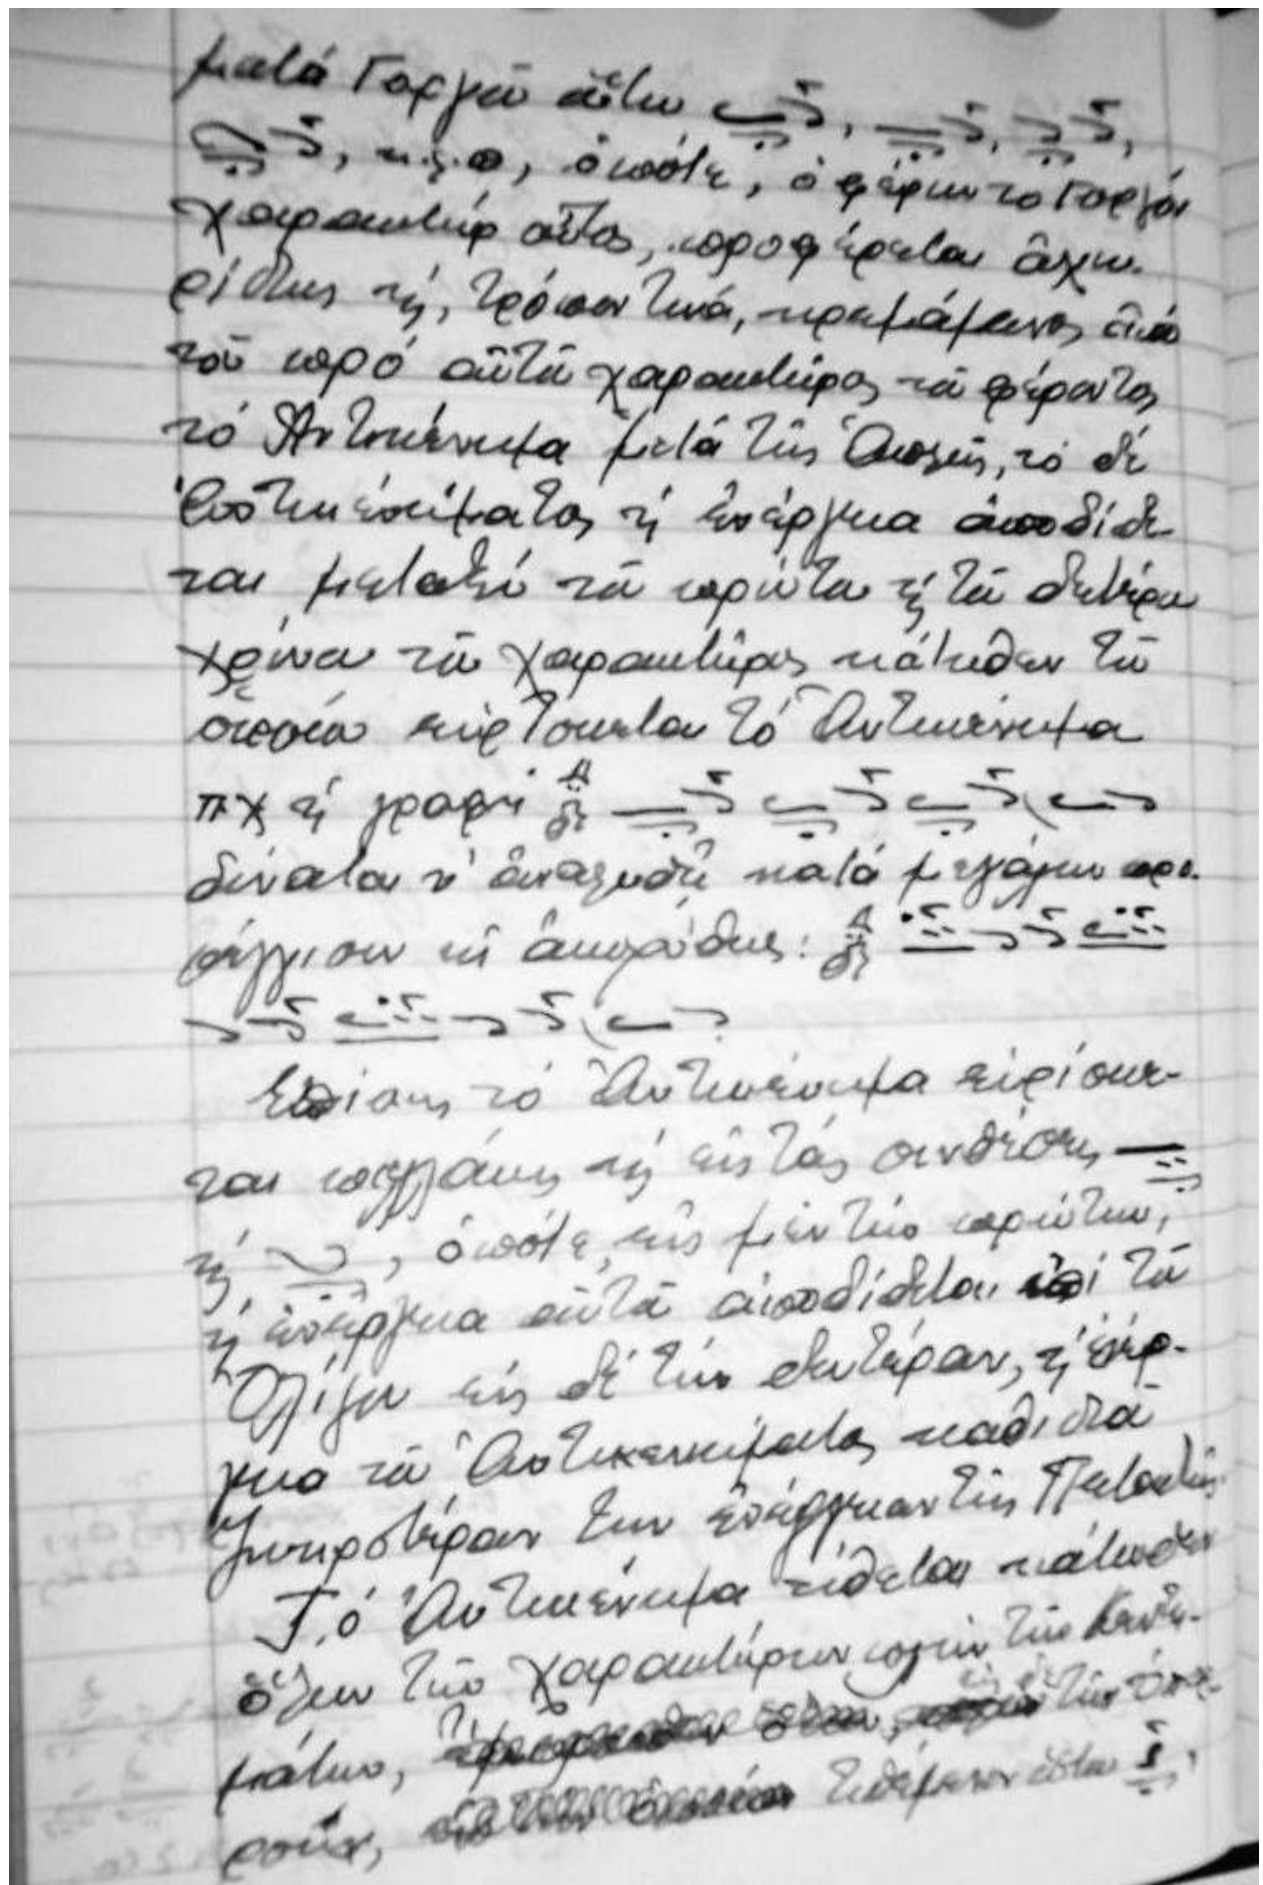 μετά Γοργοῦ οὕτω
κ.λ.π, ὁπότε, ὁ φέρων τό Γοργόν
χαρακτήρ οὗτος, προφέρεται ἀχω-
ρίστως καί, τρόπον τινά, κρεμάμενος ἀπό
τοῦ πρό αὐτοῦ χαρακτῆρος τοῦ φέροντος
τό Ἀντικένωμα μετά τῆς Ἁπλῆς, τό δέ
Ἀντικενώματος ἡ ἐνέργεια ἀποδίδε-
ται μεταξύ τοῦ πρώτου καί τοῦ δευτέρου
χρόνου τοῦ χαρακτῆρος κάτωθεν τοῦ
ὁποίου εὑρίσκεται τό Ἀντικένωμα
π.χ ἡ γραφή
δύναται ν' ἀναλυθῇ κατά μεγάλην προ-
σέγγισιν καί ἀκριβῶς:
Ἐπίσης τό Ἀντικένωμα εὑρίσκε-
ται πολλάκις καί εἰς τάς συνθέσεις
καί, ὁπότε, εἰς μέν τήν πρώτην,
ἡ ἐνέργεια αὐτοῦ ἀποδίδεται ἐπί τοῦ
Ὀλίγου εἰς δέ τήν δευτέραν, ἡ ἐνέρ-
γεια τοῦ Ἀντικενώματος καθιστᾶ
ζωηροτέραν την ἐνέργειαν τῆς Πεταστῆς.
Τό Ἀντικένωμα τίθεται κάτωθεν
ὅλων τῶν χαρακτήρων πλήν τῶν Κεντη-
μάτων, τήν ὑπορ-
ροήν, τιθέμενον οὕτω